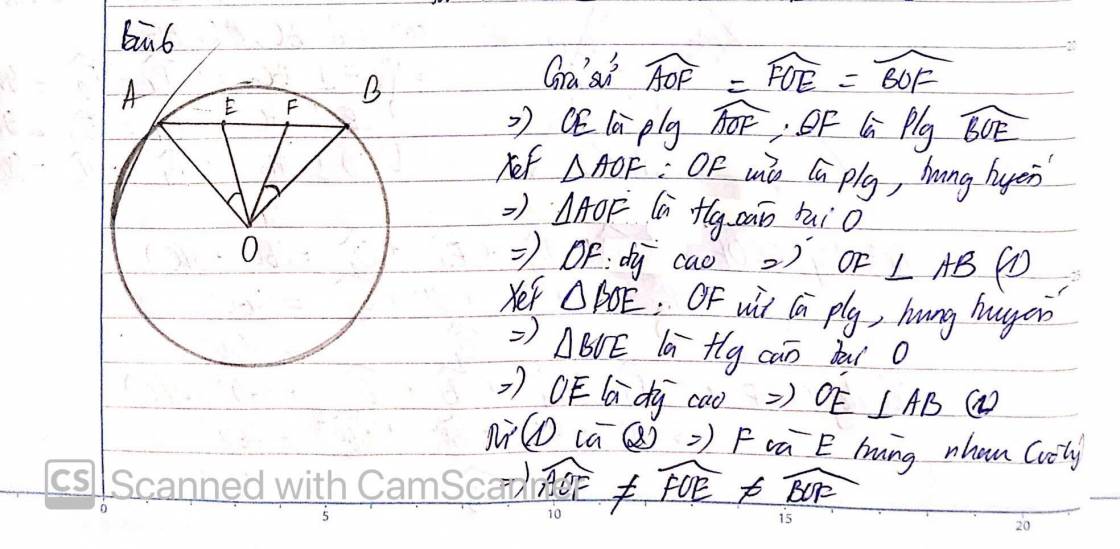 Bài 6
A
E
F
B
O
Giả sử AOF = FOE = BOF
=> OE là plg AOF ; OF là Plg BOE
Xét ΔAOF : OF vừa là plg, trung tuyến
=> ΔAOF là Hg cân tại O
=> OF : đg cao => OF ⊥ AB (1)
Xét ΔBOE : OF vừa là plg, trung tuyến
=> ΔBOE là Hg cân tại O
=> OE là đg cao => OE ⊥ AB (2)
Từ (1) và (2) => F và E trùng nhau (vô lý)
=> AOF ≠ FOE ≠ BOF
CS Scanned with CamScanner
0 5 10 15 20